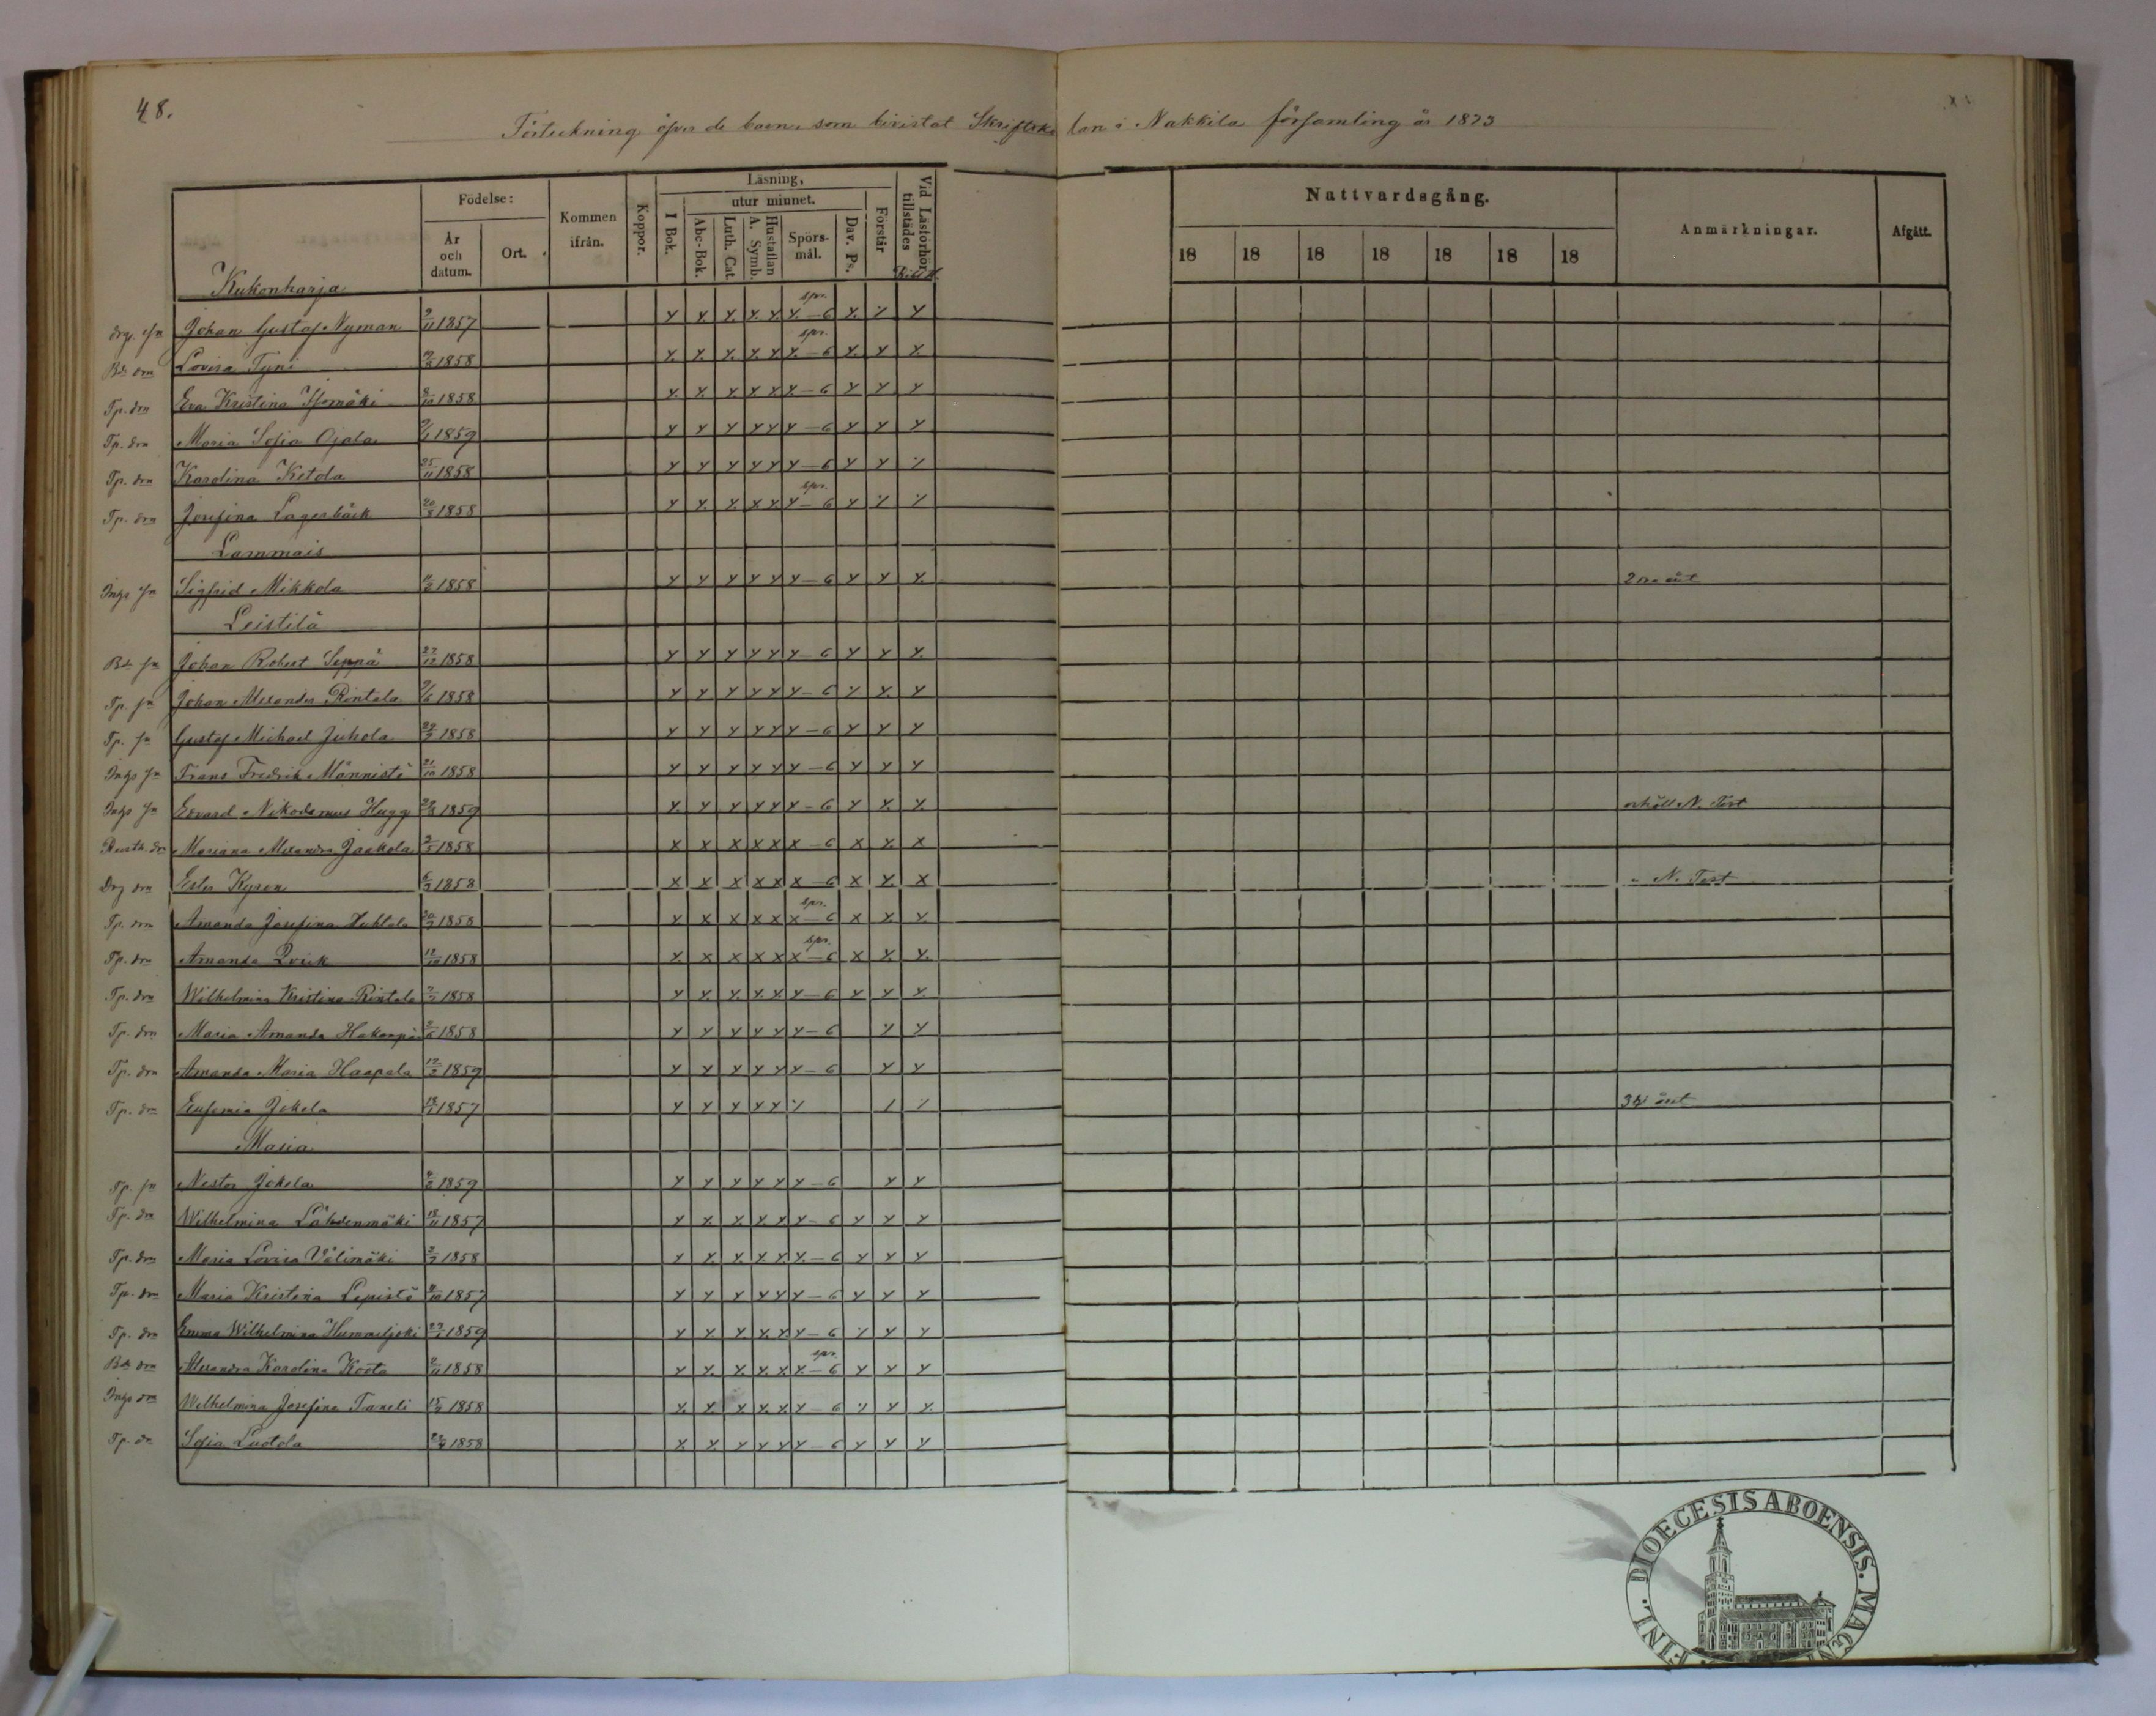 48.
Förteckning öfver de barn, som bivistat Skriftskolan i Nakkila församling år 1873
Födelse:
År och datum.
Ort.
Kommen ifrån.
Koppor.
Läsning,
I Bok.
utur minnet.
Abc-Bok.
Luth. Cat.
A. Symb.
Hustaflan
Spörsmål.
Dav. Ps.
Förstår
Vid Läsförhör tillstädes
Nattvardsgång.
18 18 18 18 18 18 18
Anmärkningar.
Afgått.
Kukonharja
drg. sn Johan Gustaf Nyman 9/11 1857 x x x x x spr. x-6 x x x
Bd. drn Lovisa Tyni 1858 x x x x x spr. x-6 x x x
Tp. drn Eva Kristina Isomäki 8/10 1858 x x x x x x-6 x x x
Tp. drn Maria Sofia Ojala 1859 x x x x x x-6 x x x
Tp. drn Karolina Ketola 25/11 1858 x x x x x x-6 x x x
Tp. drn Josefina Lagerbäck 20/8 1858 x x x x x spr. x-6 x x x
Lammais
Inhs sn Sigfrid Mikkola 1858 x x x x x x-6 x x x
Leistilä
Bd. sn Johan Robert Seppä 27/12 1858 x x x x x x-6 x x x
Tp. sn Johan Alexander Rintala 9/6 1858 x x x x x x-6 x x x
Tp. sn Gustaf Michael Juhola 1858 x x x x x x-6 x x x
Inhs sn Frans Fredrik Männistö 21/10 1858 x x x x x x-6 x x x
Inhs sn Edvard Nikodemus Hugg 1859 x x x x x x-6 x x x erhöll N. Test
Rusth. drn Mariana Alexandra Jaakola 2/5 1858 x x x x x x-6 x x x
Drg drn Ester Kyren 1858 x x x x x x-6 x x x " N. Test
Tp. drn Amanda Josefina Huhtala 1858 x x x x x spr. x-6 x x x
Tp. drn Amanda Qvick 12/10 1858 x x x x x spr. x-6 x x x
Tp. drn Wilhelmina Kristina Rintala 1858 x x x x x x-6 x x x
Tp. drn Maria Amanda 1858 x x x x x x-6 x x
Tp. drn Amanda Maria Haapala 1859 x x x x x x-6 x x
Tp. drn Eufemia Jokela 1857 x x x x x
Masia
Tp. sn Nestor Jokela 1859 x x x x x x-6 x x
Tp. drn Wilhelmina Lähdenmäki 18/11 1857 x x x x x x-6 x x x
Tp. drn Maria Lovisa Välimäki 1858 x x x x x x-6 x x x
Tp. drn Maria Kristina Lepistö 1857 x x x x x x-6 x x x
Tp. drn Emma Wilhelmina Hummeljoki 1859 x x x x x x-6 x x x
Bd. drn Alexandra Karolina Koota 2/11 1858 x x x x x spr. x-6 x x x
Inhs drn Wilhelmina Josefina Taneli 1858 x x x x x x-6 x x x
Tp. dr Sofia Luotola 1858 x x x x x x-6 x x x
DIOECESIS ABOENSIS. MAGNI
FINL.